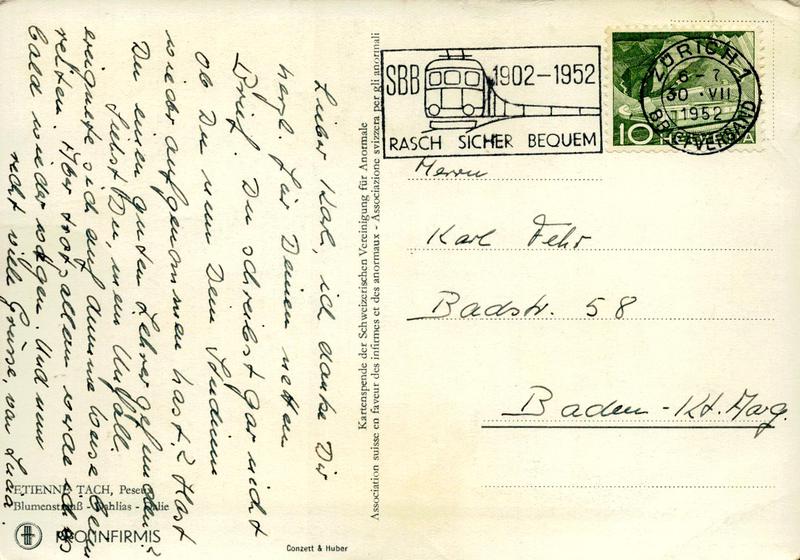 Lieber Karl, ich danke Dir
herzl. für Deinen netten
Brief. Du schreibst gar nicht
ob Du nun Dein Studium
wieder aufgenommen hast? Hast
Du einen guten Lehrer gefunden?
Siehst Du, mein Unfall
ereignete sich auf dumme Weise beim
reiten. Aber trotz allem werde ich es
bald wieder wagen. Und nun
recht viele Grüsse, von Lucia.
ETIENNE TACH, Peseux
Blumenstrauß - Dahlias - Dalie
PRO INFIRMIS
Conzett & Huber
Kartenspende der Schweizerischen Vereinigung für Anormale
Association suisse en faveur des infirmes et des anormaux - Associazione svizzera per gli anormali
SBB 1902-1952
RASCH SICHER BEQUEM
ZÜRICH 1
6-7
30.VII
1952
BRIEFVERSAND
10 HELVETIA
Herrn
Karl Fehr
Badstr. 58
Baden - Kt. Aarg.